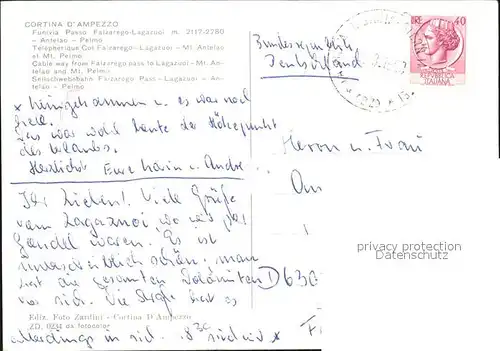 CORTINA D'AMPEZZO
Funivia Passo Falzarego-Lagazuoi m. 2117-2750
- Antelao - Pelmo
Telepherique Col Falzarego-Lagazuoi - Mt. Antelao
et Mt. Pelmo
Cable way from Falzarego pass to Lagazuoi - Mt. An-
telao and Mt. Pelmo
Seilschwebebahn Falzarego Pass-Lagazuoi - Antelao
- Pelmo
LIRE 40
REPVBBLICA
ITALIANA
Bundesrepublik
Deutschland
* u. es war noch
Das war wohl heute der Höhepunkt
des Urlaubs.
Herzlichst Eure Karin u. Andre
Herrn u. Frau
Ihr Lieben! Viele Grüße
vom Lagazuoi wo wir per
Gondel waren. Es ist
unbeschreiblich schön, man
hat die gesamten Dolomiten
vor sich. Die Strasse hat es
allerdings in sich. 8 30 sind wir *
D 630
privacy protection
DELCAMPE
Ediz. Foto Zardini - Cortina D'Ampezzo
ZD. 0234 da fotocolor